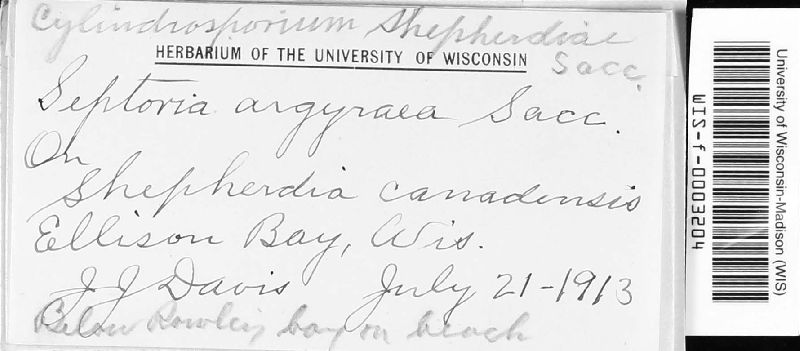 Cylindrosporium Shepherdiae
Sacc.
HERBARIUM OF THE UNIVERSITY OF WISCONSIN
Septoria argyraea Sacc.
On
Shepherdia canadensis
Ellison Bay, Wis.
J J Davis July 21-1913
Below Rowleys bay on beach
University of Wisconsin-Madison (WIS)
WIS-f-0003204